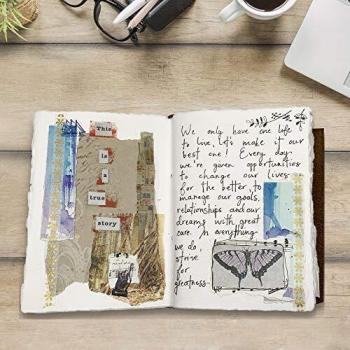 This
is
a
true
story
We only have one life
to live, let's make it our
best one! Every day
we're given opportunities
to change our lives
for the better, to
manage our goals,
relationships and our
dreams with great
care. In everything
we do,
strive
for
greatness